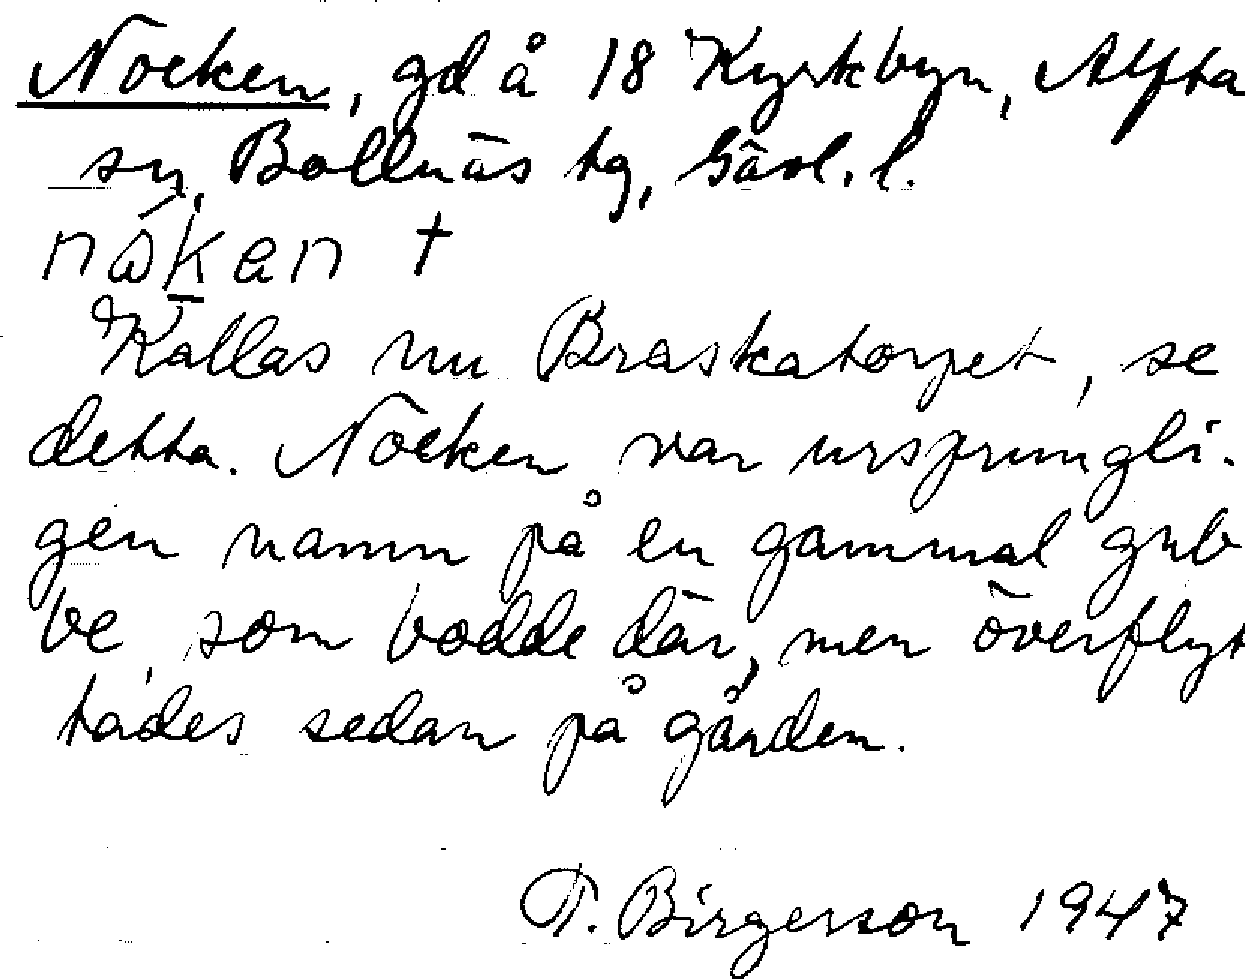 Nöcken, gd å 18 Kyrkbyn, Alfta
sn, Bollnäs tg, Gävl. l.
nák̠en †
Kallas nu Braskatorpet, se
detta. Nöcken var ursprungli-
gen namn på en gammal gub
be, som bodde där, men överflyt
tades sedan på gården.
T. Birgerson 1947